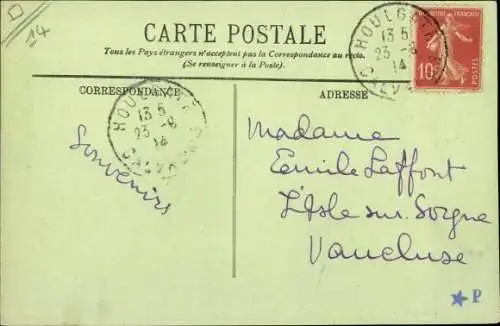 14
CARTE POSTALE
Tous les Pays étrangers n'acceptent pas la Correspondance au recto.
(Se renseigner à la Poste).
CORRESPONDANCE
ADRESSE
HOULGATE
13 5
23 -8
14
CALVADOS
RÉPUBLIQUE FRANÇAISE
10
POSTES
HOULGATE
13 5
23 -8
14
CALVADOS
Souvenirs
Madame
Emile Laffont
L'Isle sur Sorgne
Vaucluse
P